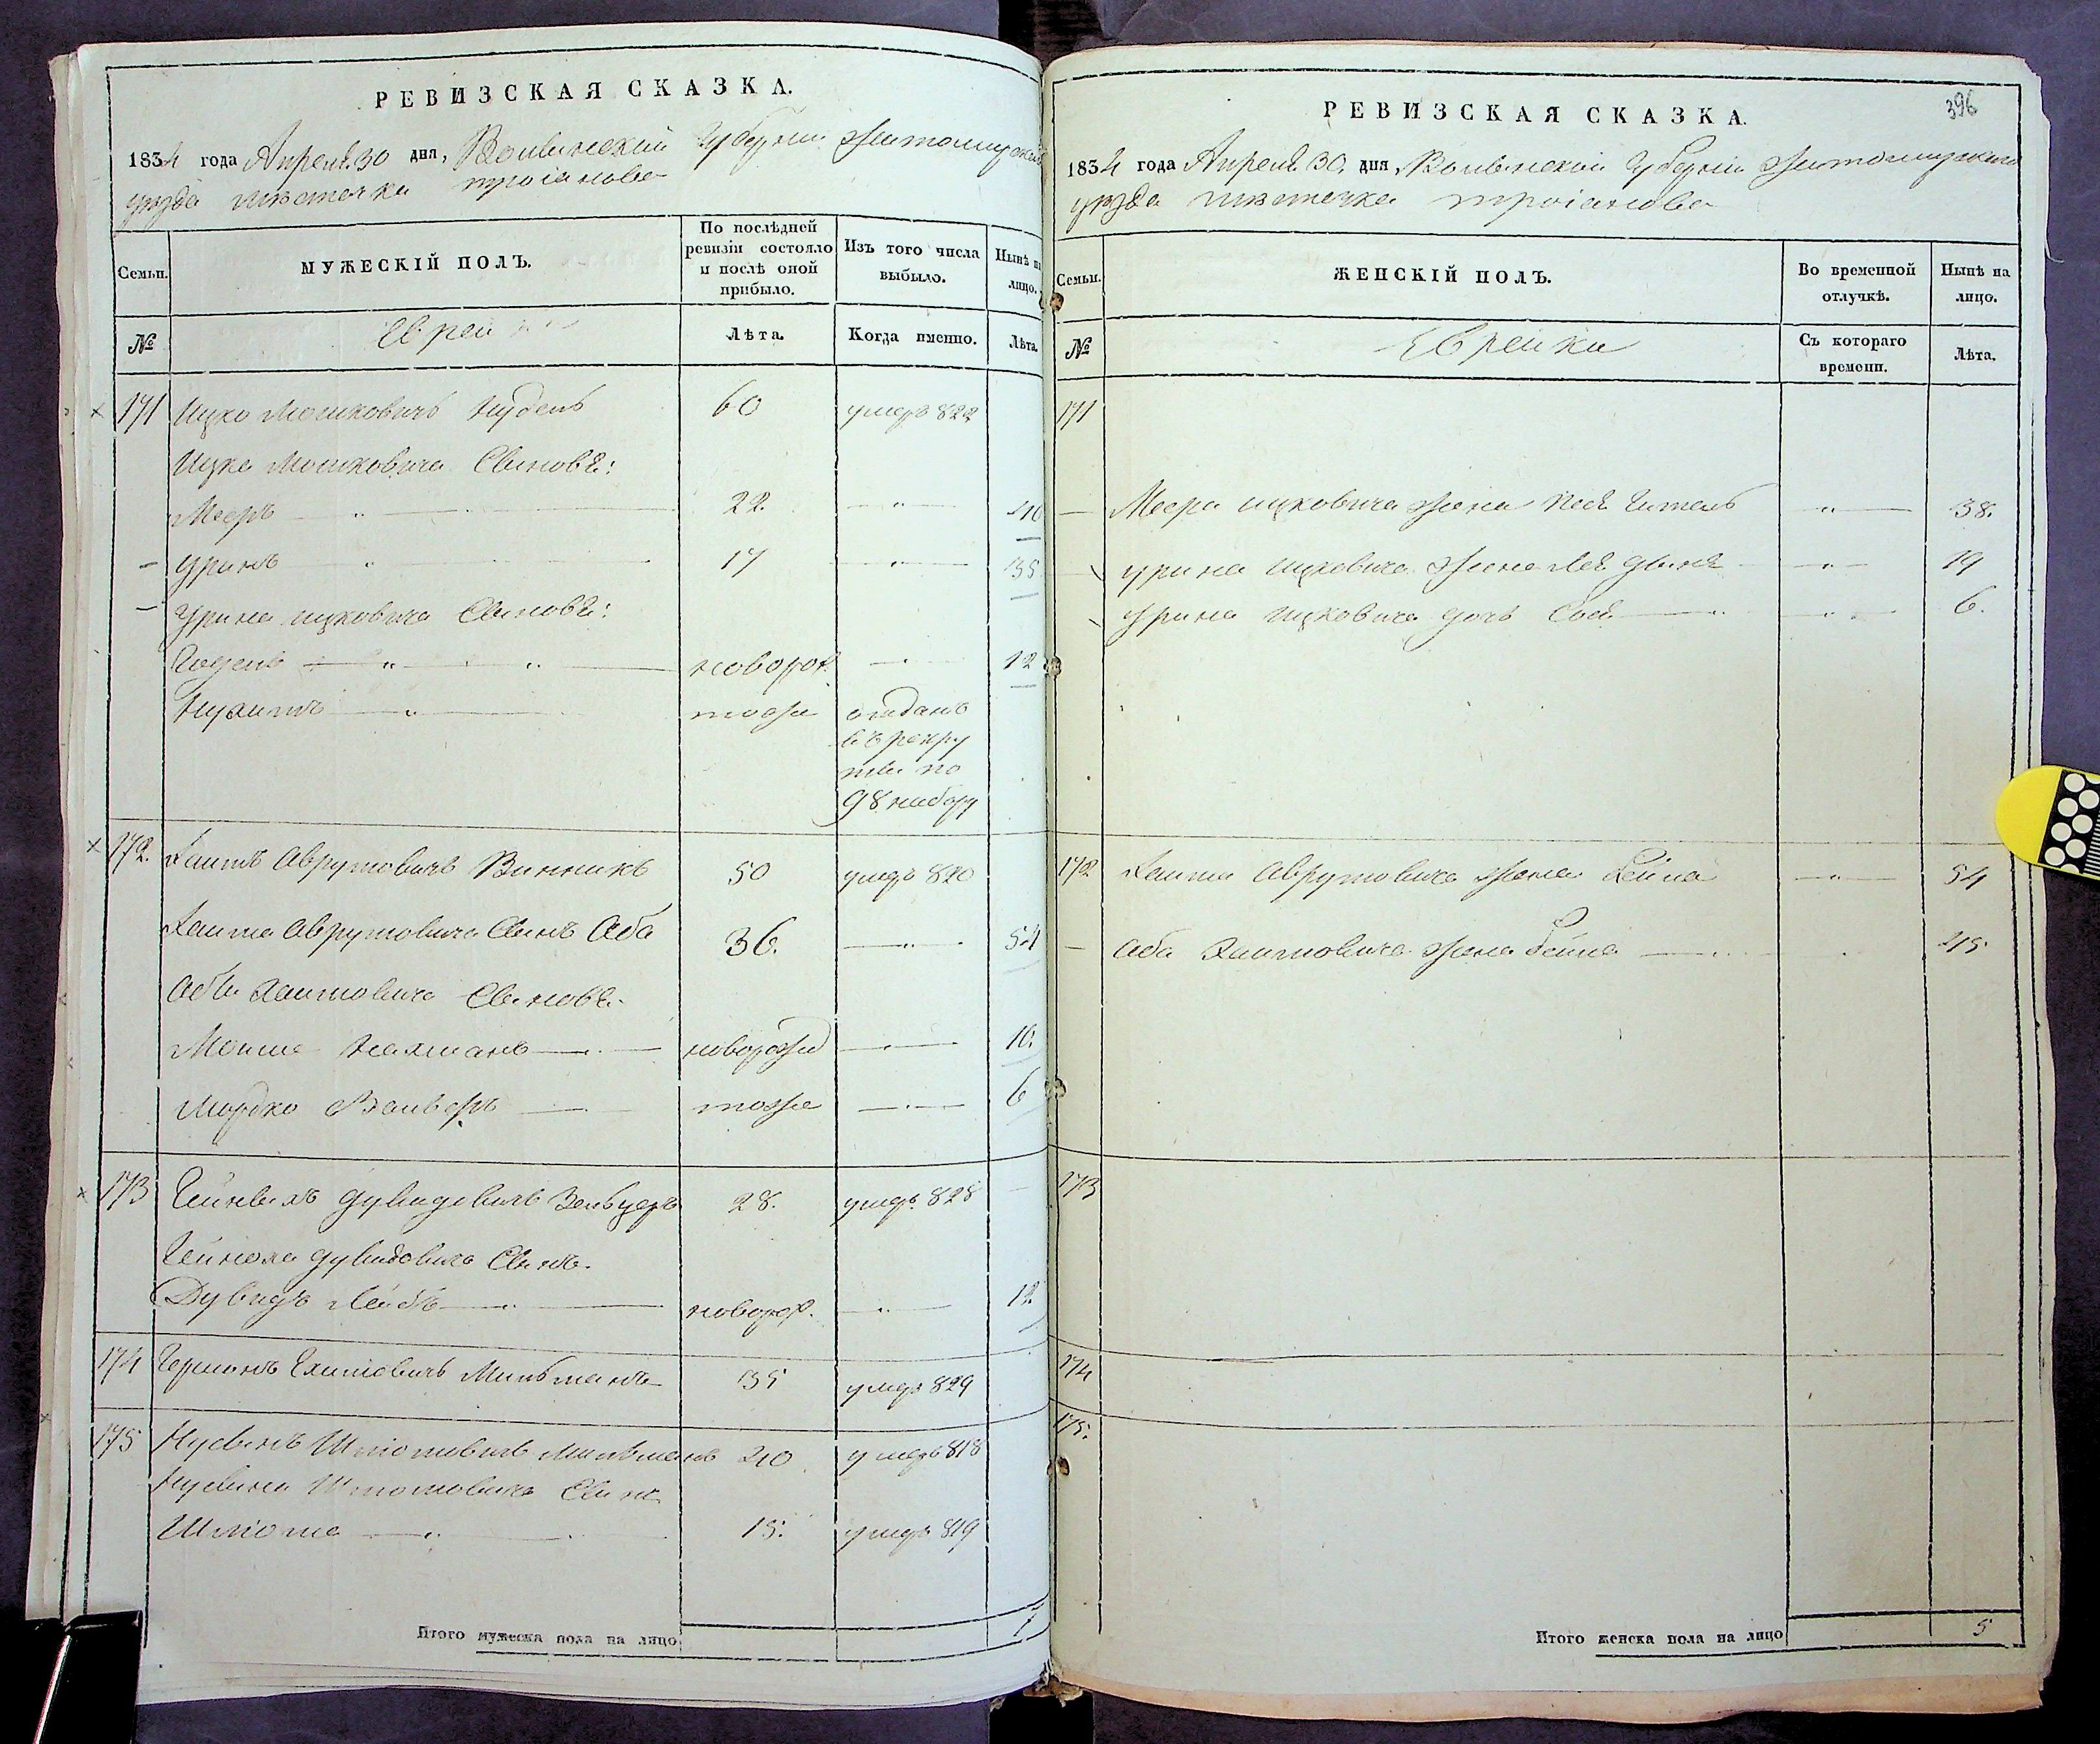 РЕВИЗСКАЯ СКАЗКА.
1834 года Апреля 30 дня, Волынской Губернии Житомирскаго
уезда местечка Троянова
Семьи.
МУЖЕСКІЙ ПОЛЪ.
По послѣдней ревизіи состояло и послѣ оной прибыло.
Изъ того числа выбыло.
Нынѣ на лицо.
№
Евреи
Лѣта.
Когда именно.
Лѣта.
171 Ицко Мошковичъ Нудель 60 умеръ 822
Ицка Мошковича Сыновѣ:
Мееръ 22. 40
Уринъ 17 35
Урина Ицковича Сыновѣ:
новорож. 12
тоже отданъ
въ рекру
ты по
98 набору
172. Хаимъ Аврумовичъ Винникъ 50 умеръ 820
Хаима Аврумовича Сынъ Аба 36. 54
Абы Хаимовича Сыновѣ.
Мошие Нахманъ новорожд 10.
Мордко тоже 6
173 Дувидовичъ Зельцеръ 28. умеръ 828
Дувидовича Сынъ.
Дувидъ Лейбъ новорож. 12
174 Мильманъ 35 умеръ 829
175 Нусынъ Шлiомовичъ Мильманъ 40 умеръ 818
Нусына Шлiомовича Сынъ
Шлiома 15. умеръ 819
Итого мужеска пола на лицо 7
396
РЕВИЗСКАЯ СКАЗКА.
1834 года Апреля 30. дня, Волынской Губерніи Житомирскаго
уезда местечка Троянова
Семьи.
ЖЕНСКІЙ ПОЛЪ.
Во временной отлучкѣ.
Нынѣ на лицо.
№
Еврейки
Съ котораго времени.
Лѣта.
171
Меера Ицковича жена 38.
Урина Ицковича жена 19
Урина Ицковича дочь 6.
172 Хаима Аврумовича жена 54
Аба Хаимовича жена Бейла 45.
173
174
175.
Итого женска пола на лицо 5